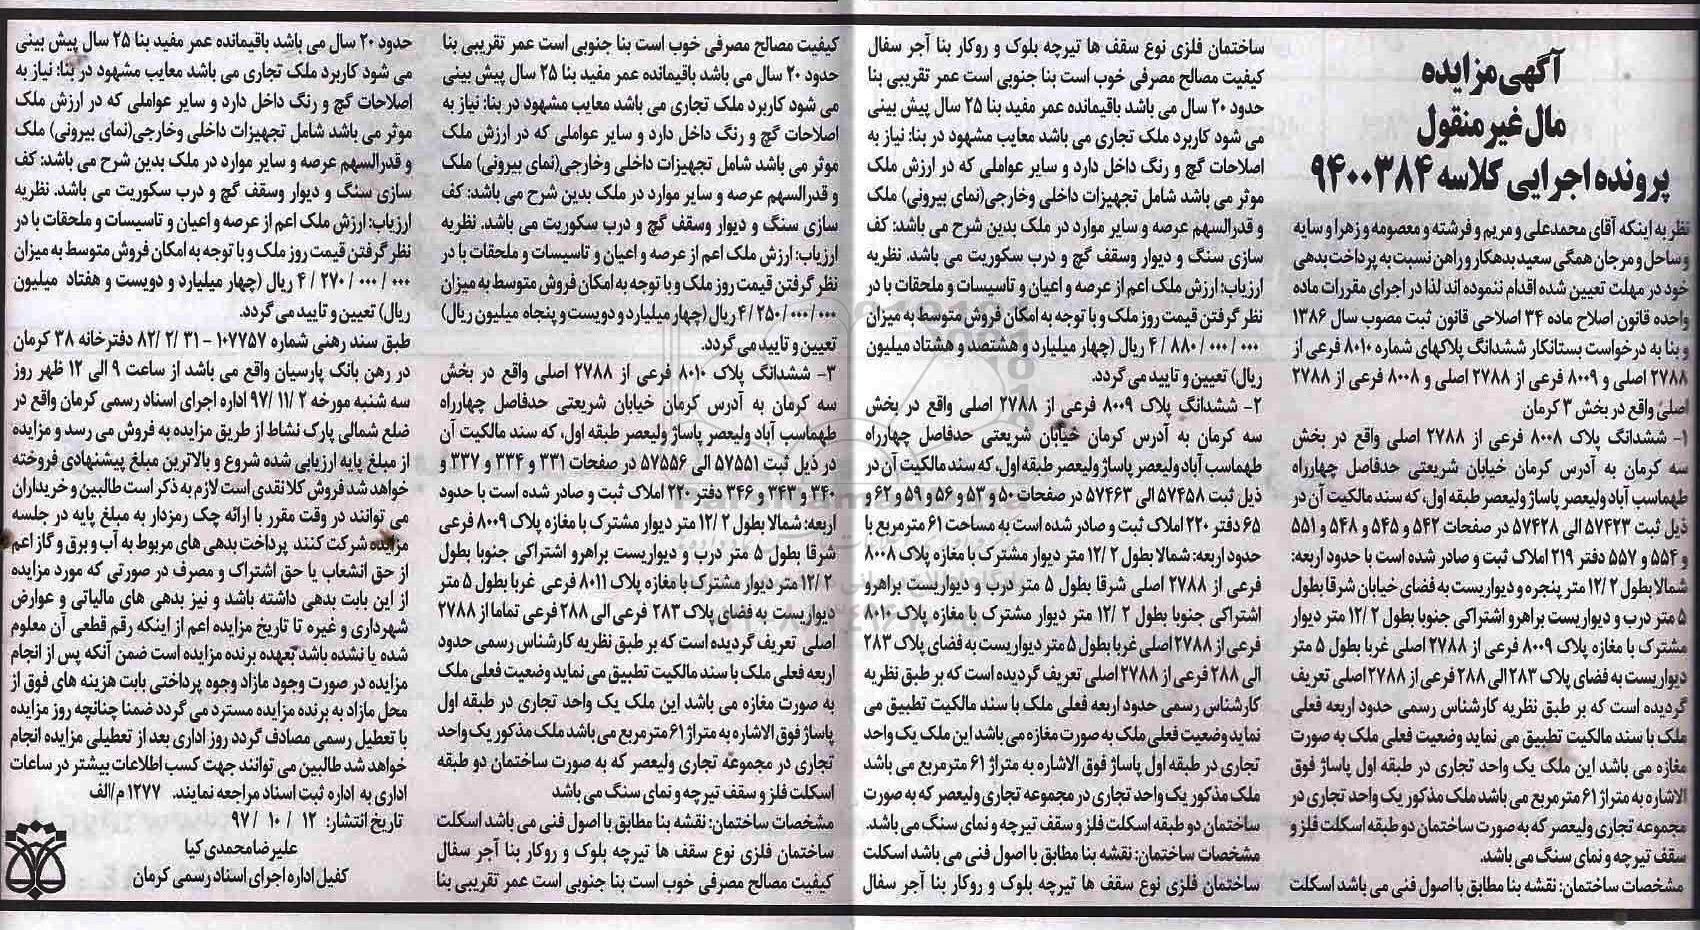 آگهی مزایده
مال غیر منقول
پرونده اجرایی کلاسه ۹۴۰۰۳۸۴
نظر به اینکه آقای محمدعلی و مریم و فرشته و معصومه و زهرا و سایه
و ساحل و مرجان همگی سعید بدهکار و راهن نسبت به پرداخت بدهی
خود در مهلت تعیین شده اقدام ننموده اند لذا در اجرای مقررات ماده
واحده قانون اصلاح ماده ۳۴ اصلاحی قانون ثبت مصوب سال ۱۳۸۶
و بنا به درخواست بستانکار ششدانگ پلاکهای شماره ۸۰۱۰ فرعی از
۲۷۸۸ اصلی و ۸۰۰۹ فرعی از ۲۷۸۸ اصلی و ۸۰۰۸ فرعی از ۲۷۸۸
اصلی واقع در بخش ۳ کرمان
۱- ششدانگ پلاک ۸۰۰۸ فرعی از ۲۷۸۸ اصلی واقع در بخش
سه کرمان به آدرس کرمان خیابان شریعتی حدفاصل چهارراه
طهماسب آباد ولیعصر پاساژ ولیعصر طبقه اول، که سند مالکیت آن در
ذیل ثبت ۵۷۴۲۳ الی ۵۷۴۲۸ در صفحات ۵۴۲ و ۵۴۵ و ۵۴۸ و ۵۵۱
و ۵۵۴ و ۵۵۷ دفتر ۲۱۹ املاک ثبت و صادر شده است با حدود اربعه:
شمالا بطول ۲ /۱۲ متر پنجره و دیواریست به فضای خیابان شرقا بطول
۵ متر درب و دیواریست براهرو اشتراکی جنوبا بطول ۲ /۱۲ متر دیوار
مشترک با مغازه پلاک ۸۰۰۹ فرعی از ۲۷۸۸ اصلی غربا بطول ۵ متر
دیواریست به فضای پلاک ۲۸۳ الی ۲۸۸ فرعی از ۲۷۸۸ اصلی تعریف
گردیده است که بر طبق نظریه کارشناس رسمی حدود اربعه فعلی
ملک با سند مالکیت تطبیق می نماید وضعیت فعلی ملک به صورت
مغازه می باشد این ملک یک واحد تجاری در طبقه اول پاساژ فوق
الاشاره به متراژ ۶۱ مترمربع می باشد ملک مذکور یک واحد تجاری در
مجموعه تجاری ولیعصر که به صورت ساختمان دو طبقه اسکلت فلز و
سقف تیرچه و نمای سنگ می باشد.
مشخصات ساختمان: نقشه بنا مطابق با اصول فنی می باشد اسکلت
ساختمان فلزی نوع سقف ها تیرچه بلوک و روکار بنا آجر سفال
کیفیت مصالح مصرفی خوب است بنا جنوبی است عمر تقریبی بنا
حدود ۲۰ سال می باشد باقیمانده عمر مفید بنا ۲۵ سال پیش بینی
می شود کاربرد ملک تجاری می باشد معایب مشهود در بنا: نیاز به
اصلاحات گچ و رنگ داخل دارد و سایر عواملی که در ارزش ملک
موثر می باشد شامل تجهیزات داخلی وخارجی(نمای بیرونی) ملک
و قدرالسهم عرصه و سایر موارد در ملک بدین شرح می باشد: کف
سازی سنگ و دیوار وسقف گچ و درب سکوریت می باشد. نظریه
ارزیاب: ارزش ملک اعم از عرصه و اعیان و تاسیسات و ملحقات با در
نظر گرفتن قیمت روز ملک و با توجه به امکان فروش متوسط به میزان
۴/ ۸۸۰/ ۰۰۰/ ۰۰۰ ریال (چهار میلیارد و هشتصد و هشتاد میلیون
ریال) تعیین و تایید می گردد.
۲- ششدانگ پلاک ۸۰۰۹ فرعی از ۲۷۸۸ اصلی واقع در بخش
سه کرمان به آدرس کرمان خیابان شریعتی حدفاصل چهارراه
طهماسب آباد ولیعصر پاساژ ولیعصر طبقه اول، که سند مالکیت آن در
ذیل ثبت ۵۷۴۵۸ الی ۵۷۴۶۳ در صفحات ۵۰ و ۵۳ و ۵۶ و ۵۹ و ۶۲ و
۶۵ دفتر ۲۲۰ املاک ثبت و صادر شده است به مساحت ۶۱ مترمربع با
حدود اربعه: شمالا بطول ۲ /۱۲ متر دیوار مشترک با مغازه پلاک ۸۰۰۸
فرعی از ۲۷۸۸ اصلی شرقا بطول ۵ متر درب و دیواریست براهرو
اشتراکی جنوبا بطول ۲ /۱۲ متر دیوار مشترک با مغازه پلاک ۸۰۱۰
فرعی از ۲۷۸۸ اصلی غربا بطول ۵ متر دیواریست به فضای پلاک ۲۸۳
الی ۲۸۸ فرعی از ۲۷۸۸ اصلی تعریف گردیده است که بر طبق نظریه
کارشناس رسمی حدود اربعه فعلی ملک با سند مالکیت تطبیق می
نماید وضعیت فعلی ملک به صورت مغازه می باشد این ملک یک واحد
تجاری در طبقه اول پاساژ فوق الاشاره به متراژ ۶۱ مترمربع می باشد
ملک مذکور یک واحد تجاری در مجموعه تجاری ولیعصر که به صورت
ساختمان دو طبقه اسکلت فلز و سقف تیرچه و نمای سنگ می باشد.
مشخصات ساختمان: نقشه بنا مطابق با اصول فنی می باشد اسکلت
ساختمان فلزی نوع سقف ها تیرچه بلوک و روکار بنا آجر سفال
کیفیت مصالح مصرفی خوب است بنا جنوبی است عمر تقریبی بنا
حدود ۲۰ سال می باشد باقیمانده عمر مفید بنا ۲۵ سال پیش بینی
می شود کاربرد ملک تجاری می باشد معایب مشهود در بنا: نیاز به
اصلاحات گچ و رنگ داخل دارد و سایر عواملی که در ارزش ملک
موثر می باشد شامل تجهیزات داخلی وخارجی(نمای بیرونی) ملک
و قدرالسهم عرصه و سایر موارد در ملک بدین شرح می باشد: کف
سازی سنگ و دیوار وسقف گچ و درب سکوریت می باشد. نظریه
ارزیاب: ارزش ملک اعم از عرصه و اعیان و تاسیسات و ملحقات با در
نظر گرفتن قیمت روز ملک و با توجه به امکان فروش متوسط به میزان
۴/ ۲۵۰/ ۰۰۰/ ۰۰۰ ریال (چهار میلیارد و دویست و پنجاه میلیون ریال)
تعیین و تایید می گردد.
۳- ششدانگ پلاک ۸۰۱۰ فرعی از ۲۷۸۸ اصلی واقع در بخش
سه کرمان به آدرس کرمان خیابان شریعتی حدفاصل چهارراه
طهماسب آباد ولیعصر پاساژ ولیعصر طبقه اول، که سند مالکیت آن
در ذیل ثبت ۵۷۵۵۱ الی ۵۷۵۵۶ در صفحات ۳۳۱ و ۳۳۴ و ۳۳۷ و
۳۴۰ و ۳۴۳ و ۳۴۶ دفتر ۲۲۰ املاک ثبت و صادر شده است با حدود
اربعه: شمالا بطول ۲ /۱۲ متر دیوار مشترک با مغازه پلاک ۸۰۰۹ فرعی
شرقا بطول ۵ متر درب و دیواریست براهرو اشتراکی جنوبا بطول
۲ /۱۲ متر دیوار مشترک با مغازه پلاک ۸۰۱۱ فرعی غربا بطول ۵ متر
دیواریست به فضای پلاک ۲۸۳ فرعی الی ۲۸۸ فرعی تماما از ۲۷۸۸
اصلی تعریف گردیده است که بر طبق نظریه کارشناس رسمی حدود
اربعه فعلی ملک با سند مالکیت تطبیق می نماید وضعیت فعلی ملک
به صورت مغازه می باشد این ملک یک واحد تجاری در طبقه اول
پاساژ فوق الاشاره به متراژ ۶۱ مترمربع می باشد ملک مذکور یک واحد
تجاری در مجموعه تجاری ولیعصر که به صورت ساختمان دو طبقه
اسکلت فلز و سقف تیرچه و نمای سنگ می باشد
مشخصات ساختمان: نقشه بنا مطابق با اصول فنی می باشد اسکلت
ساختمان فلزی نوع سقف ها تیرچه بلوک و روکار بنا آجر سفال
کیفیت مصالح مصرفی خوب است بنا جنوبی است عمر تقریبی بنا
حدود ۲۰ سال می باشد باقیمانده عمر مفید بنا ۲۵ سال پیش بینی
می شود کاربرد ملک تجاری می باشد معایب مشهود در بنا: نیاز به
اصلاحات گچ و رنگ داخل دارد و سایر عواملی که در ارزش ملک
موثر می باشد شامل تجهیزات داخلی وخارجی(نمای بیرونی) ملک
و قدرالسهم عرصه و سایر موارد در ملک بدین شرح می باشد: کف
سازی سنگ و دیوار وسقف گچ و درب سکوریت می باشد. نظریه
ارزیاب: ارزش ملک اعم از عرصه و اعیان و تاسیسات و ملحقات با در
نظر گرفتن قیمت روز ملک و با توجه به امکان فروش متوسط به میزان
۴/ ۲۷۰/ ۰۰۰/ ۰۰۰ ریال (چهار میلیارد و دویست و هفتاد میلیون
ریال) تعیین و تایید می گردد.
طبق سند رهنی شماره ۱۰۷۷۵۷ - ۳۱ /۲ /۸۲ دفترخانه ۳۸ کرمان
در رهن بانک پارسیان واقع می باشد از ساعت ۹ الی ۱۲ ظهر روز
سه شنبه مورخه ۲ /۱۱ /۹۷ اداره اجرای اسناد رسمی کرمان واقع در
ضلع شمالی پارک نشاط از طریق مزایده به فروش می رسد و مزایده
از مبلغ پایه ارزیابی شده شروع و بالاترین مبلغ پیشنهادی فروخته
خواهد شد فروش کلا نقدی است لازم به ذکر است طالبین و خریداران
می توانند در وقت مقرر با ارائه چک رمزدار به مبلغ پایه در جلسه
مزایده شرکت کنند پرداخت بدهی های مربوط به آب و برق و گاز اعم
از حق انشعاب یا حق اشتراک و مصرف در صورتی که مورد مزایده
از این بابت بدهی داشته باشد و نیز بدهی های مالیاتی و عوارض
شهرداری و غیره تا تاریخ مزایده اعم از اینکه رقم قطعی آن معلوم
شده یا نشده باشد بعهده برنده مزایده است ضمن آنکه پس از انجام
مزایده در صورت وجود مازاد وجوه پرداختی بابت هزینه های فوق از
محل مازاد به برنده مزایده مسترد می گردد ضمنا چنانچه روز مزایده
با تعطیل رسمی مصادف گردد روز اداری بعد از تعطیلی مزایده انجام
خواهد شد طالبین می توانند جهت کسب اطلاعات بیشتر در ساعات
اداری به اداره ثبت اسناد مراجعه نمایند. ۱۲۷۷ م/الف
تاریخ انتشار: ۱۲ / ۱۰ / ۹۷
علیرضا محمدی کیا
کفیل اداره اجرای اسناد رسمی کرمان
ParsNamadData